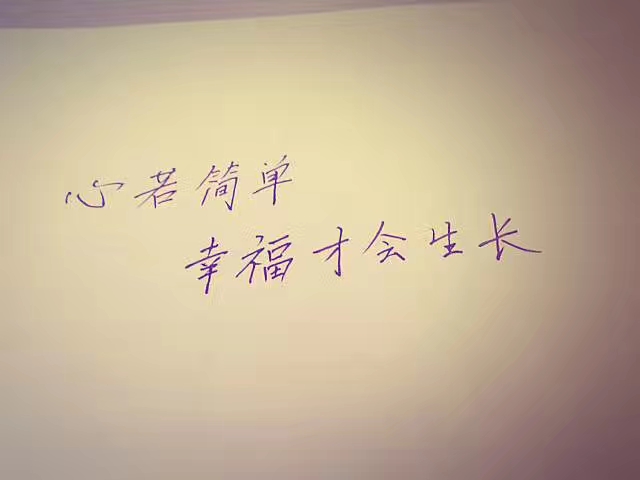 心若简单
幸福才会生长